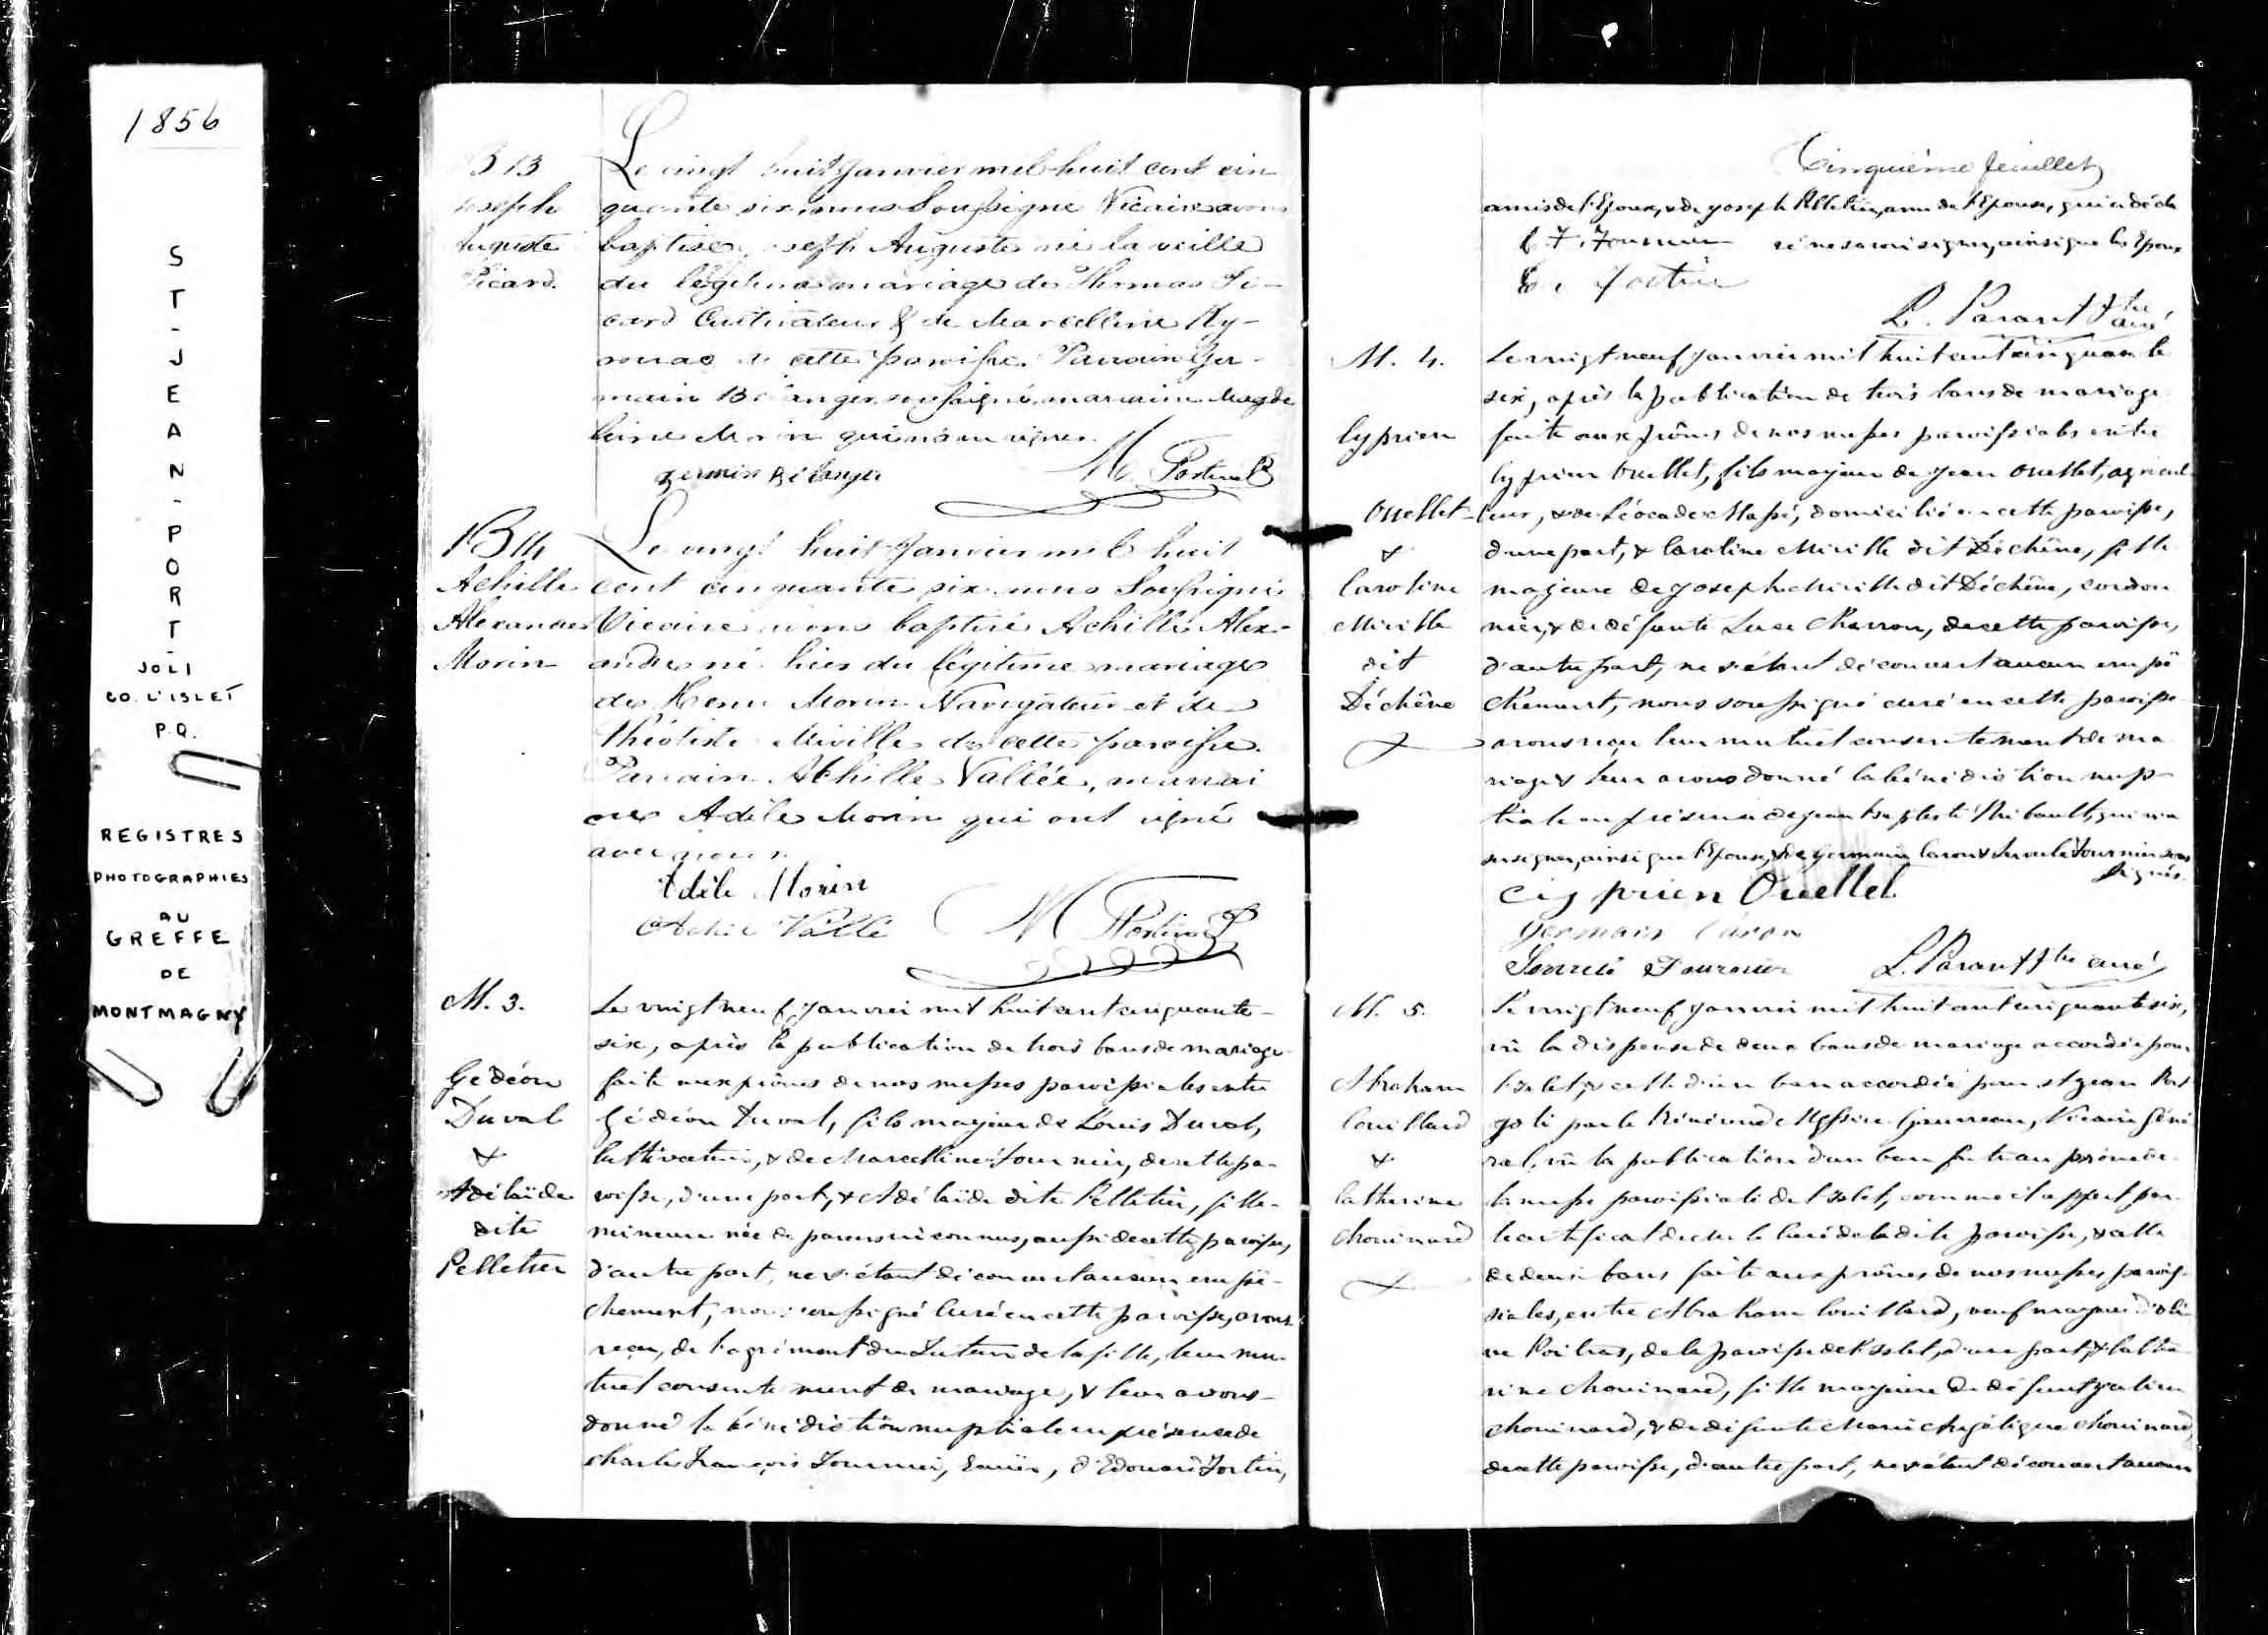 1856
ST-JEAN-PORT-
JOLI
CO. L'ISLET
P.Q.
REGISTRES
PHOTOGRAPHIES
AU
GREFFE
DE
MONTMAGNY
B 13
Joseph
Auguste
Picard.
Le vingt huit Janvier mil huit cent cin-
quante six, nous Soussigné Vicaire avons
baptisé Joseph Auguste né la veille
du légitime mariage de Thomas Pi-
card Cultivateur & de Marcelline
de cette paroisse. Parrain Ger-
main Bélanger soussigné marraine Magde
leine Morin qui n'a su signer.
germin Bélanger
B 14
Achille
Alexandre
Morin
Le vingt huit Janvier mil huit
cent cinquante six nous Soussigné
Vicaire avons baptisé Achille Alex-
andre né hier du légitime mariage
de Henri Morin Navigateur et de
Théotiste Miville de cette paroisse.
Parrain Achille Vallée, marrai
ne Adèle Morin qui ont signé
avec nous.
Adèle Morin
Achil Vallé
M. 3.
Gédéon
Duval
&
Adélaïde
dite
Pelletier
Le vingt neuf Janvier mil huit cent cinquante-
six, après la publication de trois bans de mariage
faite aux prônes de nos messes paroissiales entre
Gédéon Duval, fils majeur de Louis Duval,
Cultivateur, & de Marcelline Fournier, de cette pa-
roisse, d'une part, & Adélaïde dite Pelletier, fille
mineure née de parens inconnus, aussi de cette paroisse,
d'autre part, ne s'étant découvert aucun empê-
chement, nous soussigné Curé en cette paroisse, avons
reçu, de l'agrément du Tuteur de la fille, leur mu-
tuel consentement de mariage, & leur avons
donné la bénédiction nuptiale en présence de
Charles François Fournier, Ecuier, d'Edouard Fortin,
Cinquième feuillet
amis de l'Epoux, & de Joseph Pelletier, ami de l'Epouse, qui a décla
C. F. Fournier ré ne savoir signer, ainsi que les Epoux
Ed. Fortin
L. Parant Ptre
curé
M. 4.
Cyprien
Ouellet
&
Caroline
Miville
dit
Déchêne
Le vingt neuf Janvier mil huit cent cinquante
six, après la publication de trois bans de mariage
faite aux prônes de nos messes paroissiales entre
Cyprien Ouellet, fils majeur de Jean Ouellet, agricul-
teur, & de Léocade Massé, domicilié en cette paroisse,
d'une part, & Caroline Miville dit Déchêne, fille
majeure de Joseph Miville dit Déchêne, cordon
nier, & de défunte Luce Charron, de cette paroisse,
d'autre part, ne s'étant découvert aucun empê
chement, nous soussigné curé en cette paroisse
avons reçu leur mutuel consentement de ma
riage & leur avons donné la bénédiction nup-
tiale en présence de Jean Baptiste Thibault, qui n'a
su signer, ainsi que l'Epouse, & de Germain Caron & Fournier sous
signés.
Cyprien Ouellet
Germain Caron
Fournier L. Parant Ptre curé
M. 5.
Abraham
Couillard
&
Catherine
Chouinard
Le vingt neuf Janvier mil huit cent cinquante six,
vû la dispense de deux bans de mariage accordée pour
l'Islet, & celle d'un ban accordée pour St Jean Port
Joli par le Révérend Messire Gauvreau, Vicaire Géné
ral, vû la publication d'un ban faite au prône de
la messe paroissiale de l'Islet, comme il appert par
le certificat de le Curé de la dite paroisse, & celle
de deux bans faite aux prônes de nos messes parois-
siales, entre Abraham Couillard, veuf majeur d'Oli
ve Poitras, de la paroisse de l'Islet, d'une part, & Cathe
rine Chouinard, fille majeure de défunt Julien
Chouinard, & de défunte Marie Angélique Chouinard,
de cette paroisse, d'autre part, ne s'étant découvert aucun